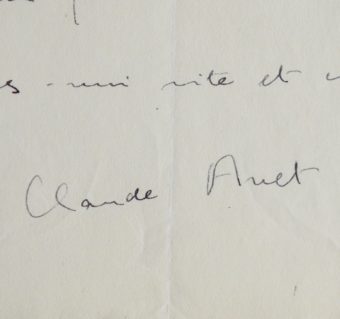 s-moi vite et
Claude Anet